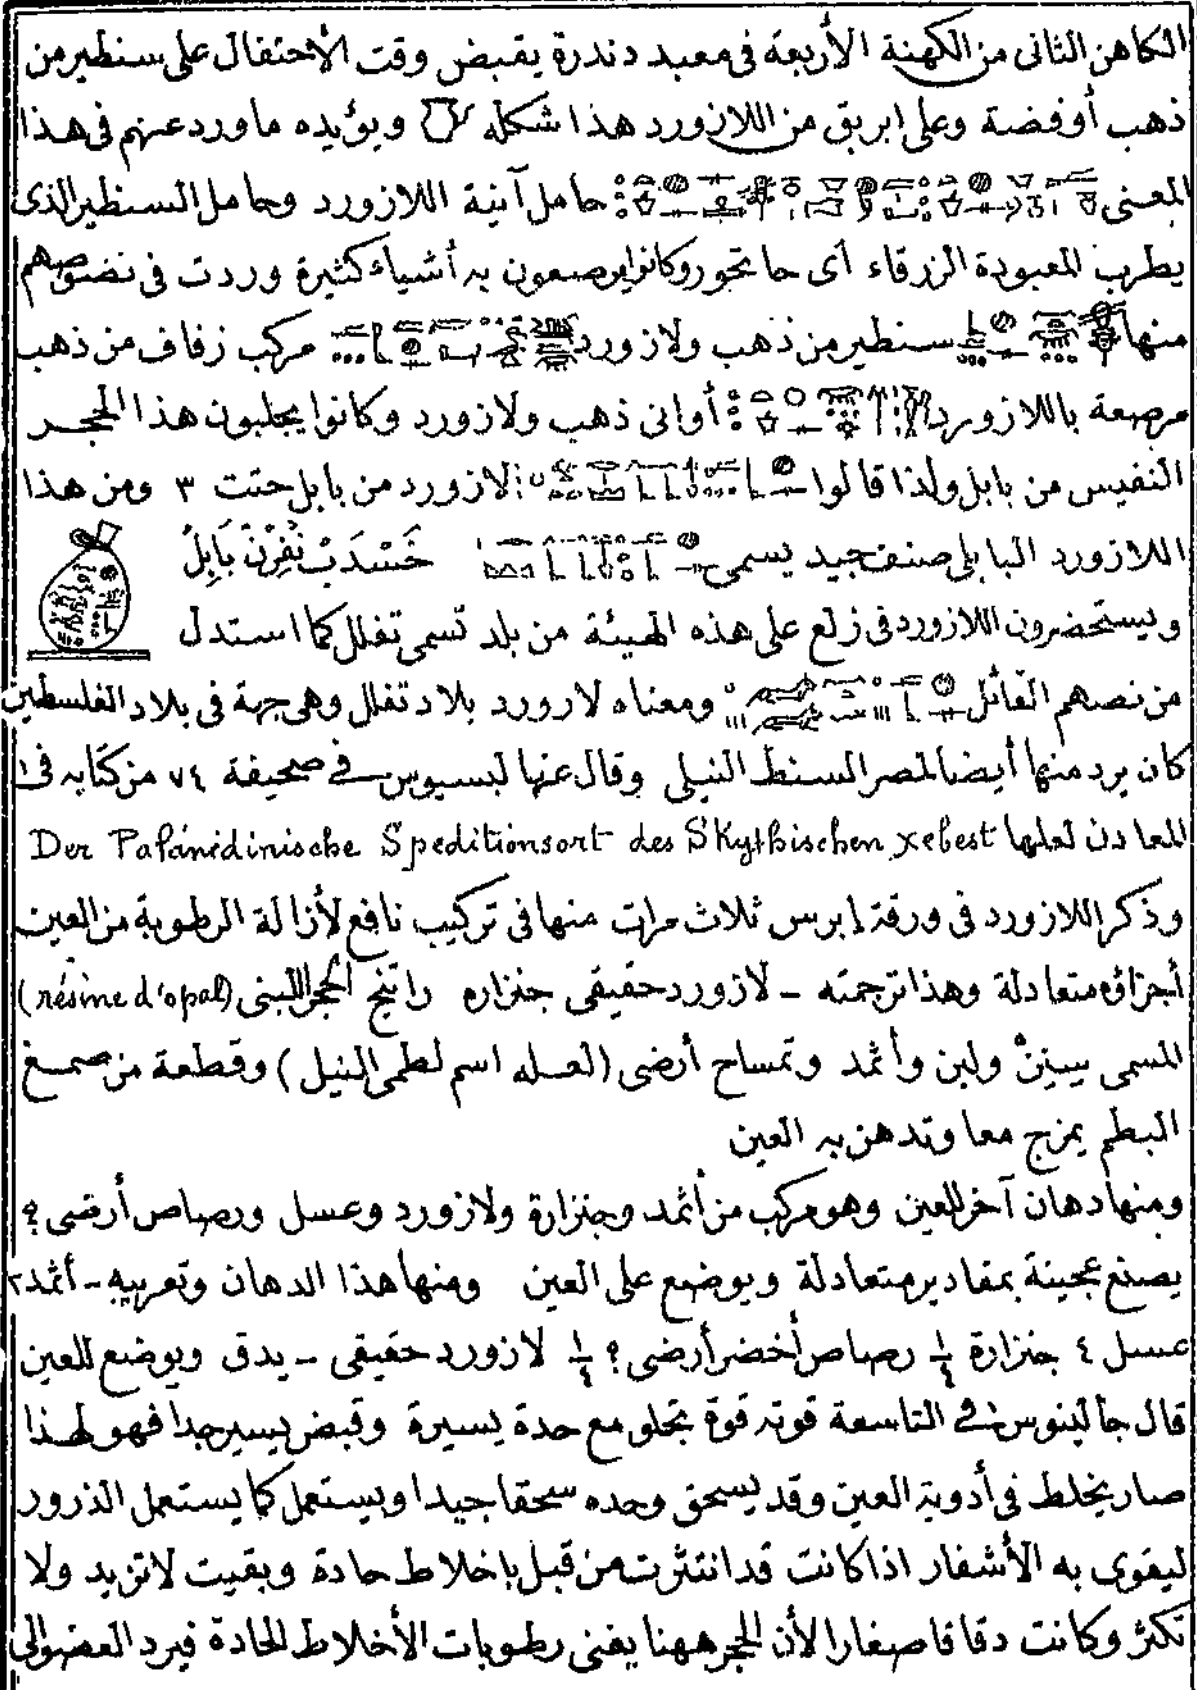 الكاهن الثانى من الكهنة الأربعة فى معبد دندرة يقبض وقت الأحتفال على سنطير من
ذهب أوفضة وعلى ابريق من اللازورد هذا شكله ويؤيده ماورد عنهم فى هذا
المعنى حامل آنية اللازورد وحامل السنطير الذى
يطرب المعبودة الزرقاء أى حاتحور وكانوا يرصعون به أشياء كثيرة وردت فى نصوصهم
منها سنطير من ذهب ولازورد مركب زفاف من ذهب
مرصعة باللازورد أوانى ذهب ولازورد وكانوا يجلبون هذا الحجر
النفيس من بابل ولذا قالوا لازورد من بابل حتت ٣ ومن هذا
اللازورد البابلى صنف جيد يسمى خَسْدَبْ نُفِرْنْ بَابِلُ
ويستحضرون اللازورد فى زلع على هذه الهيئة من بلد تسمى تفلل كما استدل
من نصهم القائل ومعناه لازورد بلاد تفلل وهى جهة فى بلاد الفلسطين
كان يرد منها أيضا لمصر السنط النيلى وقال عنها لبسيوس فى صحيفة ٧٤ من كتابه فى
المعادن لعلها Der Palänidinische Speditionsort des Skythischen xebest
وذكر اللازورد فى ورقة ابرس ثلاث مرات منها فى تركيب نافع لأزالة الرطوبة من العين
أجزاؤه متعادلة وهذا ترجمته - لازورد حقيقى جنزاره راتنج الحجر اللبنى (résine d'opal)
المسمى ولبن وأثمد وتمساح أرضى (لعله اسم لطمى النيل) وقطعة من صمغ
البطم يمزج معا وتدهن به العين
ومنها دهان آخر للعين وهو مركب من أثمد وجنزارة ولازورد وعسل ورصاص أرضى ؟
يصنع عجينة بمقادير متعادلة ويوضع على العين ومنها هذا الدهان وتعريبه - أثمد ٢
عسل ٤ جنزارة ¼ رصاص أخضر أرضى ؟ ¼ لازورد حقيقى - يدق ويوضع للعين
قال جالينوس فى التاسعة قوته قوة تجلو مع حدة يسيرة وقبض يسير جدا فهو لهذا
صار يخلط فى أدوية العين وقد يسحق وحده سحقا جيدا ويستعمل كما يستعمل الذرور
ليقوى به الأشفار اذا كانت قد انتثرت من قبل باخلاط حادة وبقيت لا تزيد ولا
تكثر وكانت دقاقا صغارا لأن الحجر ههنا يفنى رطوبات الأخلاط الحادة فيرد العضو الى